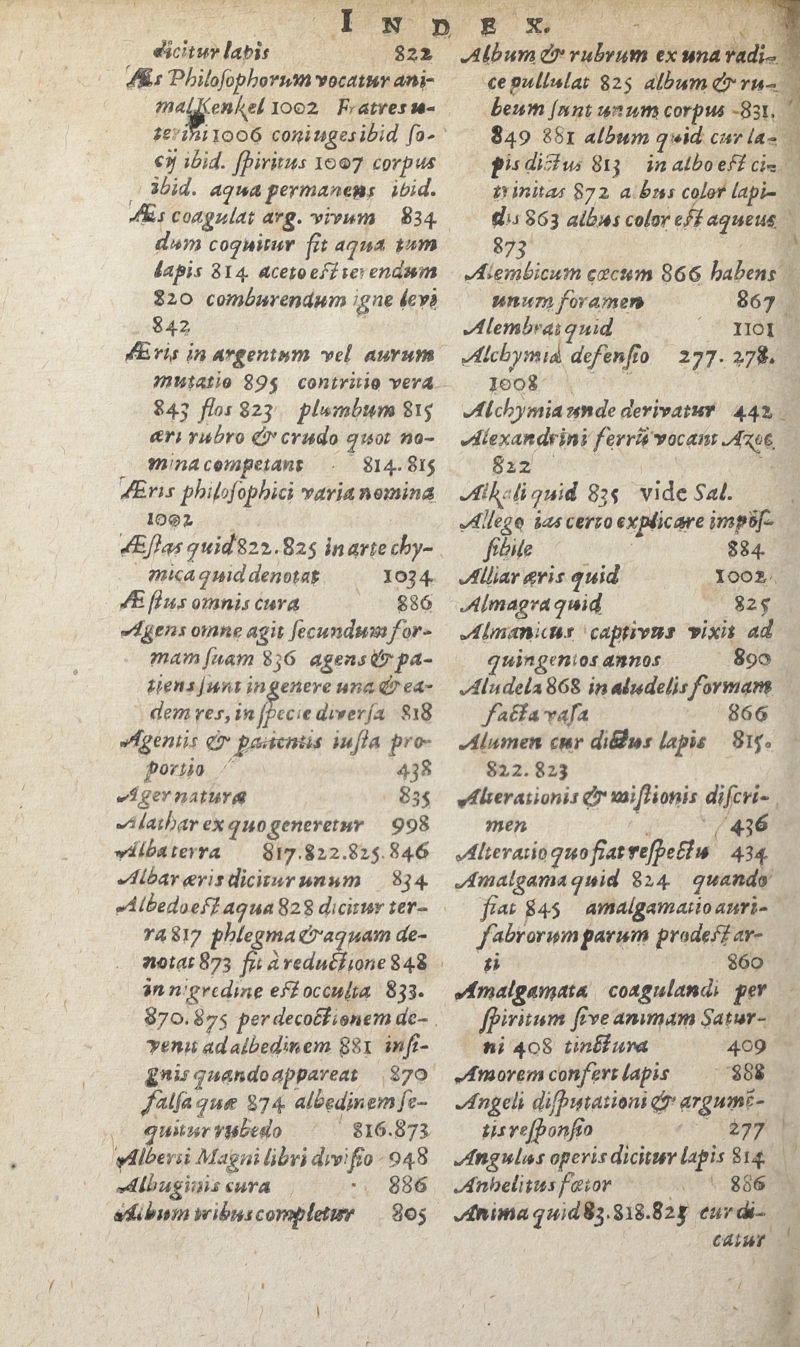 INDEX.
dicitur lapis 822
Æs Philosophorum vocatur ani-
mal Kenkel 1002 Fratres u-
terini 1006 coniuges ibid so-
cij ibid. spiritus 1007 corpus
ibid. aqua permanens ibid.
Æs coagulat arg. vivum 834
dum coquitur fit aqua tum
lapis 814 aceto est terendum
820 comburendum igne levi
842
Æris in argentum vel aurum
mutatio 895 contritio vera
843 flos 823 plumbum 815
æri rubro & crudo quot no-
mina competant 814. 815
Æris philosophici varia nomina
1002
Æstas quid 822. 825 in arte chy-
mica quid denotat 1034
Æstus omnis cura 886
Agens omne agit secundum for-
mam suam 836 agens & pa-
tiens sunt in genere una & ea-
dem res, in specie diversa 818
Agentis & patientis iusta pro-
portio 438
Ager naturæ 835
Alathar ex quo generetur 998
Alba terra 817. 822. 825. 846
Albar æris dicitur unum 834
Albedo est aqua 828 dicitur ter-
ra 817 phlegma & aquam de-
notat 873 fit à reductione 848
in nigredine est occulta 833.
870. 875 per decoctionem de-
venit ad albedinem 881 insi-
gnis quando appareat 870
falsa quæ 874 albedinem se-
quitur rubedo 816. 873
Alberti Magni libri divisio 948
Albuginis cura 886
Album tribus completur 805
Album & rubrum ex una radi-
ce pullulat 825 album & ru-
beum sunt unum corpus 831.
849 881 album quid cur la-
pis dictus 813 in albo est ci-
trinitas 872 albus color lapi-
dis 863 albus color est aqueus
873
Alembicum cæcum 866 habens
unum foramen 867
Alembrat quid 1101
Alchymiæ defensio 277. 278.
1008
Alchymia unde derivatur 442
Alexandrini ferrũ vocant Azoc
822
Alkali quid 835 vide Sal.
Allegorias certo explicare impos-
sibile 884
Alliar æris quid 1002
Almagra quid 825
Almanicus captivus vixit ad
quingentos annos 890
Aludela 868 in aludelis formam
facta vasa 866
Alumen cur dictus lapis 815.
822. 823
Alterationis & mistionis discri-
men 436
Alteratio quo fiat respectu 434
Amalgama quid 824 quando
fiat 845 amalgamatio auri-
fabrorum parum prodest ar-
ti 860
Amalgamata coagulandi per
spiritum sive animam Satur-
ni 408 tinctura 409
Amorem confert lapis 888
Angeli disputationi & argumẽ-
tis responsio 277
Angulus operis dicitur lapis 814
Anhelitus fœtor 886
Anima quid 83. 818. 825 cur di-
catur